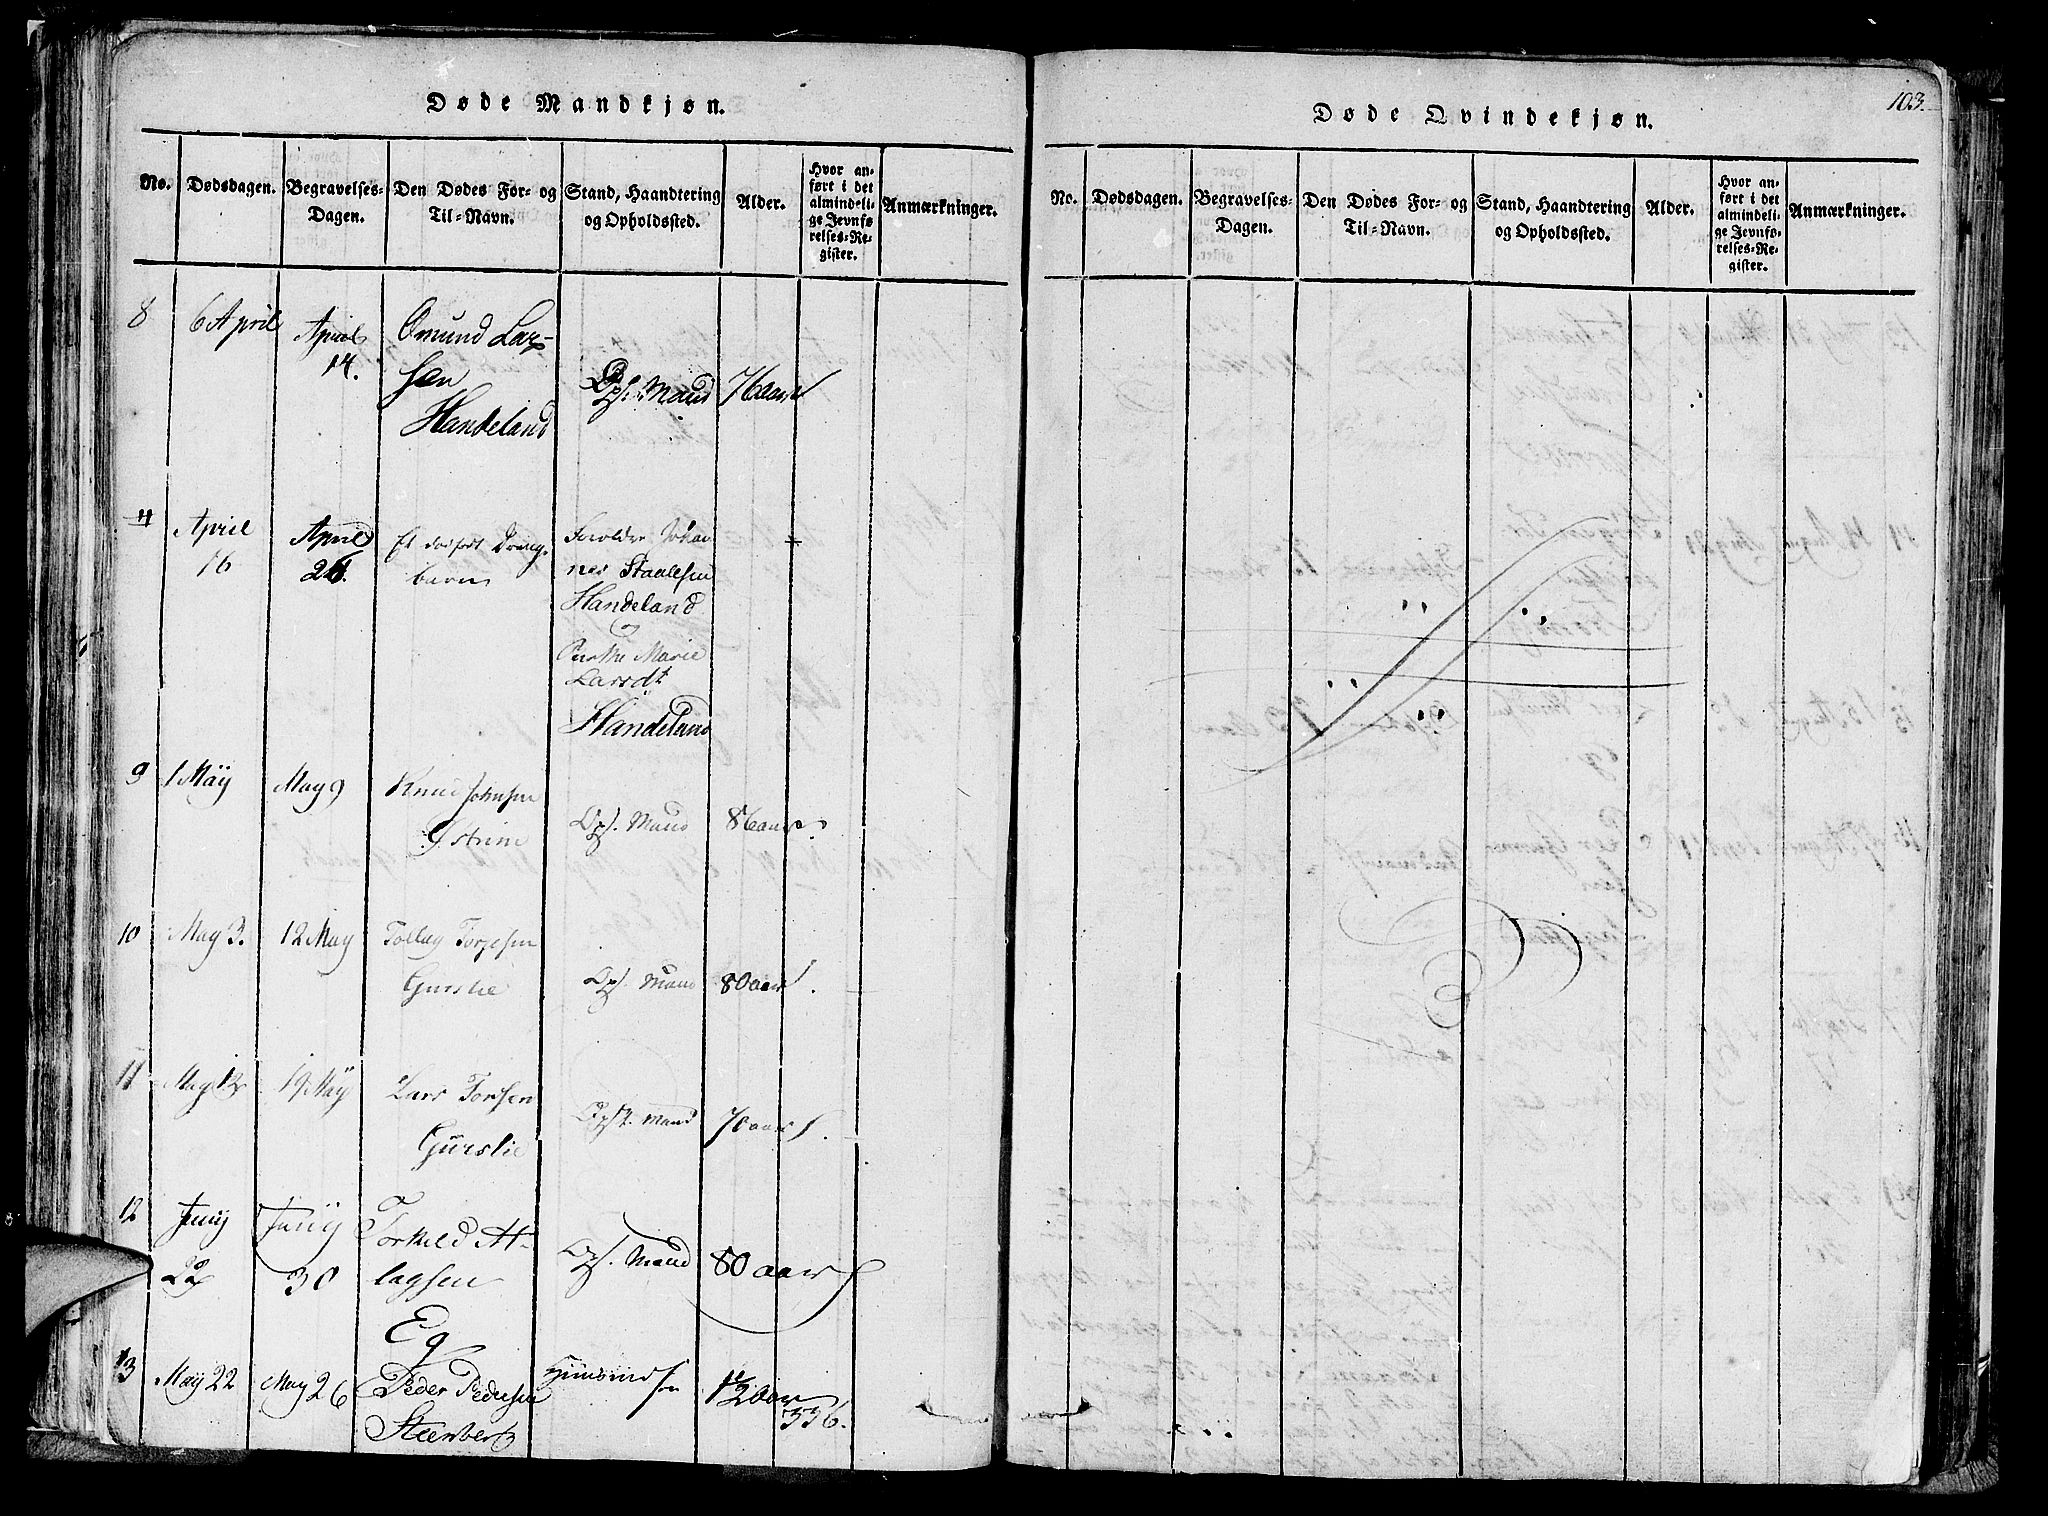 Døde Mandkjøn.
No.
Dødsdagen.
Begravelses-
Dagen.
Den Dødes For- og
Til-Navn.
Stand, Haandtering
og Opholdssted.
Alder.
Hvor an-
ført i det
almindeli-
ge Jevnfø-
relses-Re-
gister.
Anmærkninger.
8
6 April
April
14.
Omund Lar-
sen
Handeland
Ops. Mand
76 aar
April
16
April
26.
Et dødfødt Drenge-
barn
Forældre Johan
nes Staalesen
Handeland
og
Marie
Larsdt
Handeland
9
1 Maÿ
May 9
Knud Johnsen
Ops. Mand
86 aar
10
May 3.
12 May
Tollag Torgesen
Gurslie
Ops. Mand
80 aar
11
May 12
19 Maÿ
Lars Torsen
Gurslie
Opst. Mand
70 aar
12
Juny
22
Juny
30
Torkild At-
lagsen
Eg
Ops. Mand
80 aar
13
Maÿ 22
May 26
Peder Pedersen
Steenberg
Huusmands
søn
1 1/2 aar
336.
103.
Døde Qvindekjøn.
No.
Dødsdagen.
Begravelses-
Dagen.
Den Dødes For- og
Til-Navn.
Stand, Haandtering
og Opholdssted.
Alder.
Hvor an-
ført i det
almindeli-
ge Jevnfø-
relses-Re-
gister.
Anmærkninger.